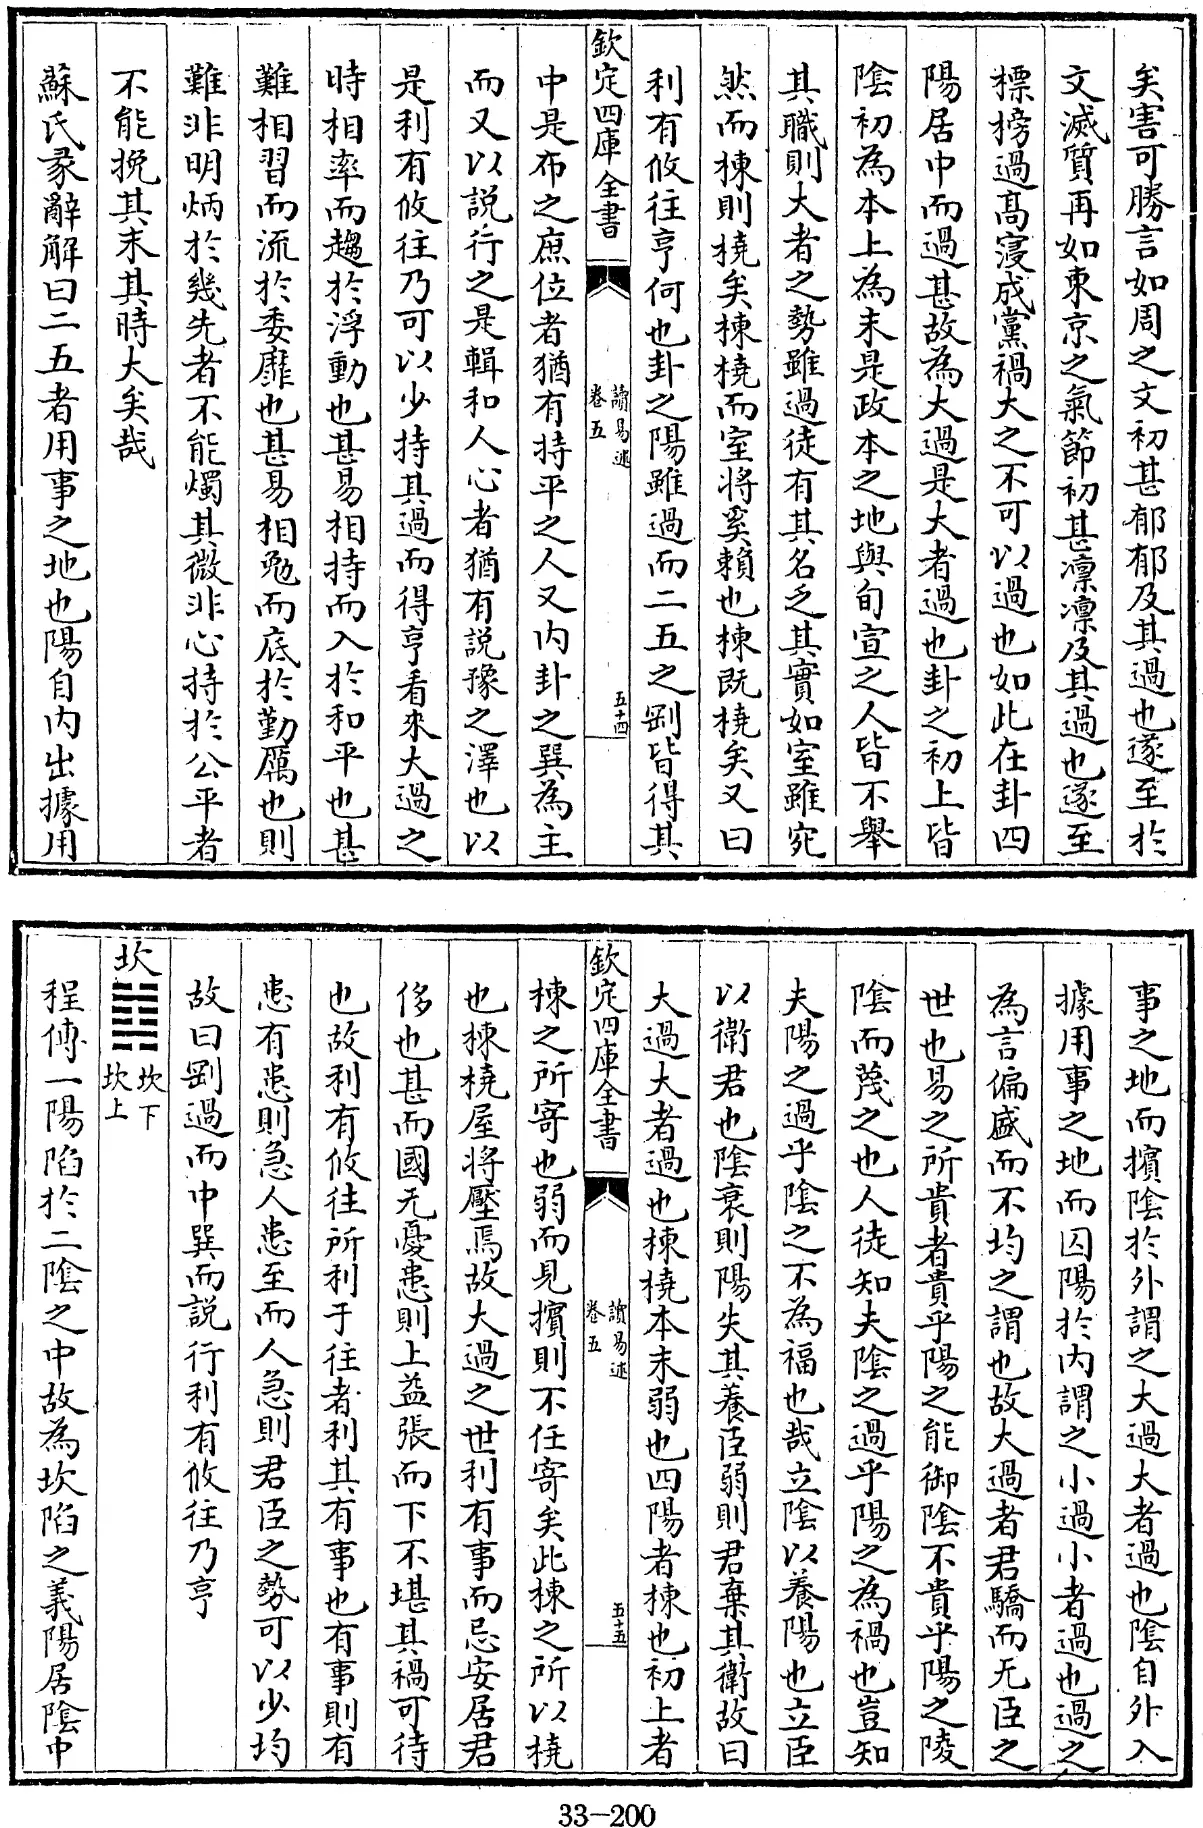 矣害可勝言如周之文初甚郁郁及其過也遂至於
文滅質再如東京之氣節初甚凛凛及其過也遂至
標榜過髙寖成黨禍大之不可以過也如此在卦四
陽居中而過甚故為大過是大者過也卦之初上皆
隂初為本上為末是政本之地與旬宣之人皆不舉
其職則大者之勢雖過徒有其名乏其實如室雖完
然而棟則橈矣棟橈而室将奚賴也棟既橈矣又曰
利有攸往亨何也卦之陽雖過而二五之剛皆得其
欽定四庫全書
讀易述
卷五
五十四
中是布之庶位者猶有持平之人又内卦之巽為主
而又以説行之是輯和人心者猶有説豫之澤也以
是利有攸往乃可以少持其過而得亨看來大過之
時相率而趨於浮動也甚易相持而入於和平也甚
難相習而流於委靡也甚易相勉而底於勤厲也則
難非明炳於幾先者不能燭其微非心持於公平者
不能挽其末其時大矣哉
蘇氏彖辭解曰二五者用事之地也陽自内出據用
事之地而擯隂於外謂之大過大者過也隂自外入
據用事之地而囚陽於内謂之小過小者過也過之
為言偏盛而不均之謂也故大過者君驕而无臣之
世也易之所貴者貴乎陽之能御隂不貴乎陽之陵
隂而蔑之也人徒知夫隂之過乎陽之為禍也豈知
夫陽之過乎隂之不為福也哉立隂以養陽也立臣
以衛君也隂衰則陽失其養臣弱則君棄其衛故曰
大過大者過也棟橈本末弱也四陽者棟也初上者
欽定四庫全書
讀易述
卷五
五十五
棟之所寄也弱而見擯則不任寄矣此棟之所以橈
也棟橈屋将壓焉故大過之世利有事而忌安居君
侈也甚而國无憂患則上益張而下不堪其禍可待
也故利有攸往所利于往者利其有事也有事則有
患有患則急人患至而人急則君臣之勢可以少均
故曰剛過而中巽而説行利有攸往乃亨
坎
坎下
坎上
程傳一陽陷於二隂之中故為坎陷之義陽居隂中
33-200